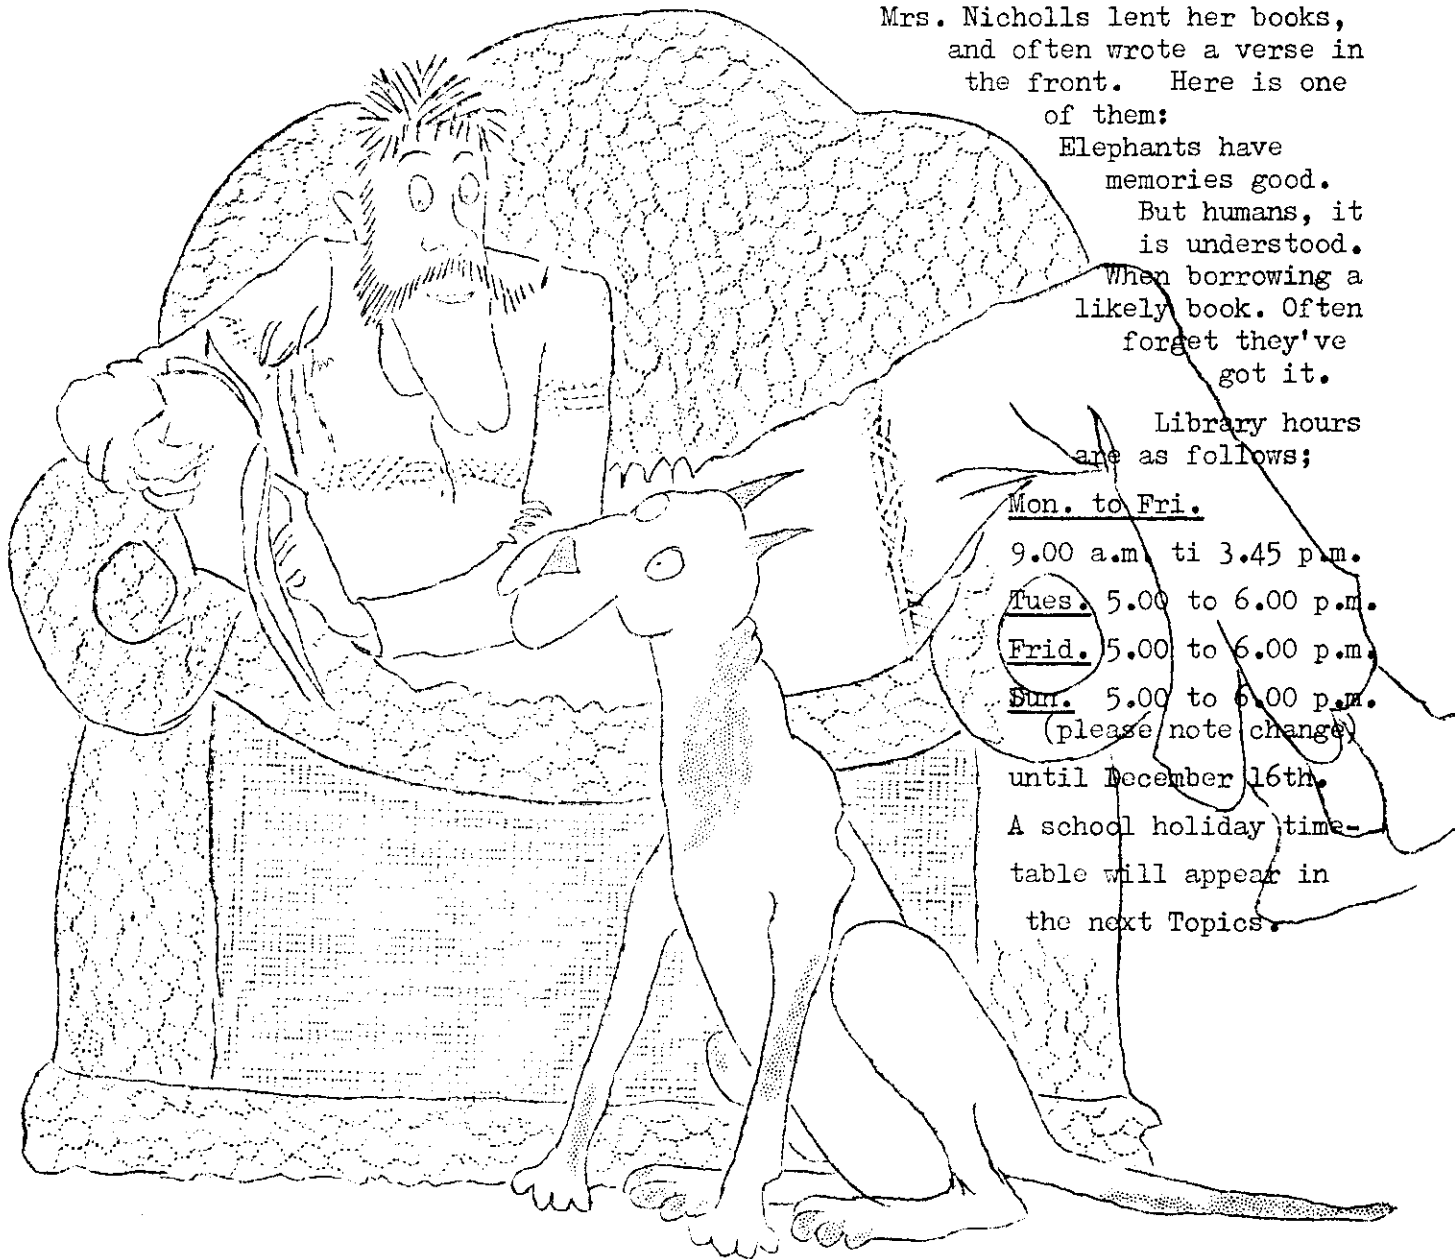 Mrs. Nicholls lent her books,
and often wrote a verse in
the front. Here is one
of them:
Elephants have
memories good.
But humans, it
is understood.
When borrowing a
likely book. Often
forget they've
got it.
Library hours
are as follows;
Mon. to Fri.
9.00 a.m. ti 3.45 p.m.
Tues. 5.00 to 6.00 p.m.
Frid. 5.00 to 6.00 p.m.
Sun. 5.00 to 6.00 p.m.
(please note change)
until December 16th.
A school holiday time-
table will appear in
the next Topics.